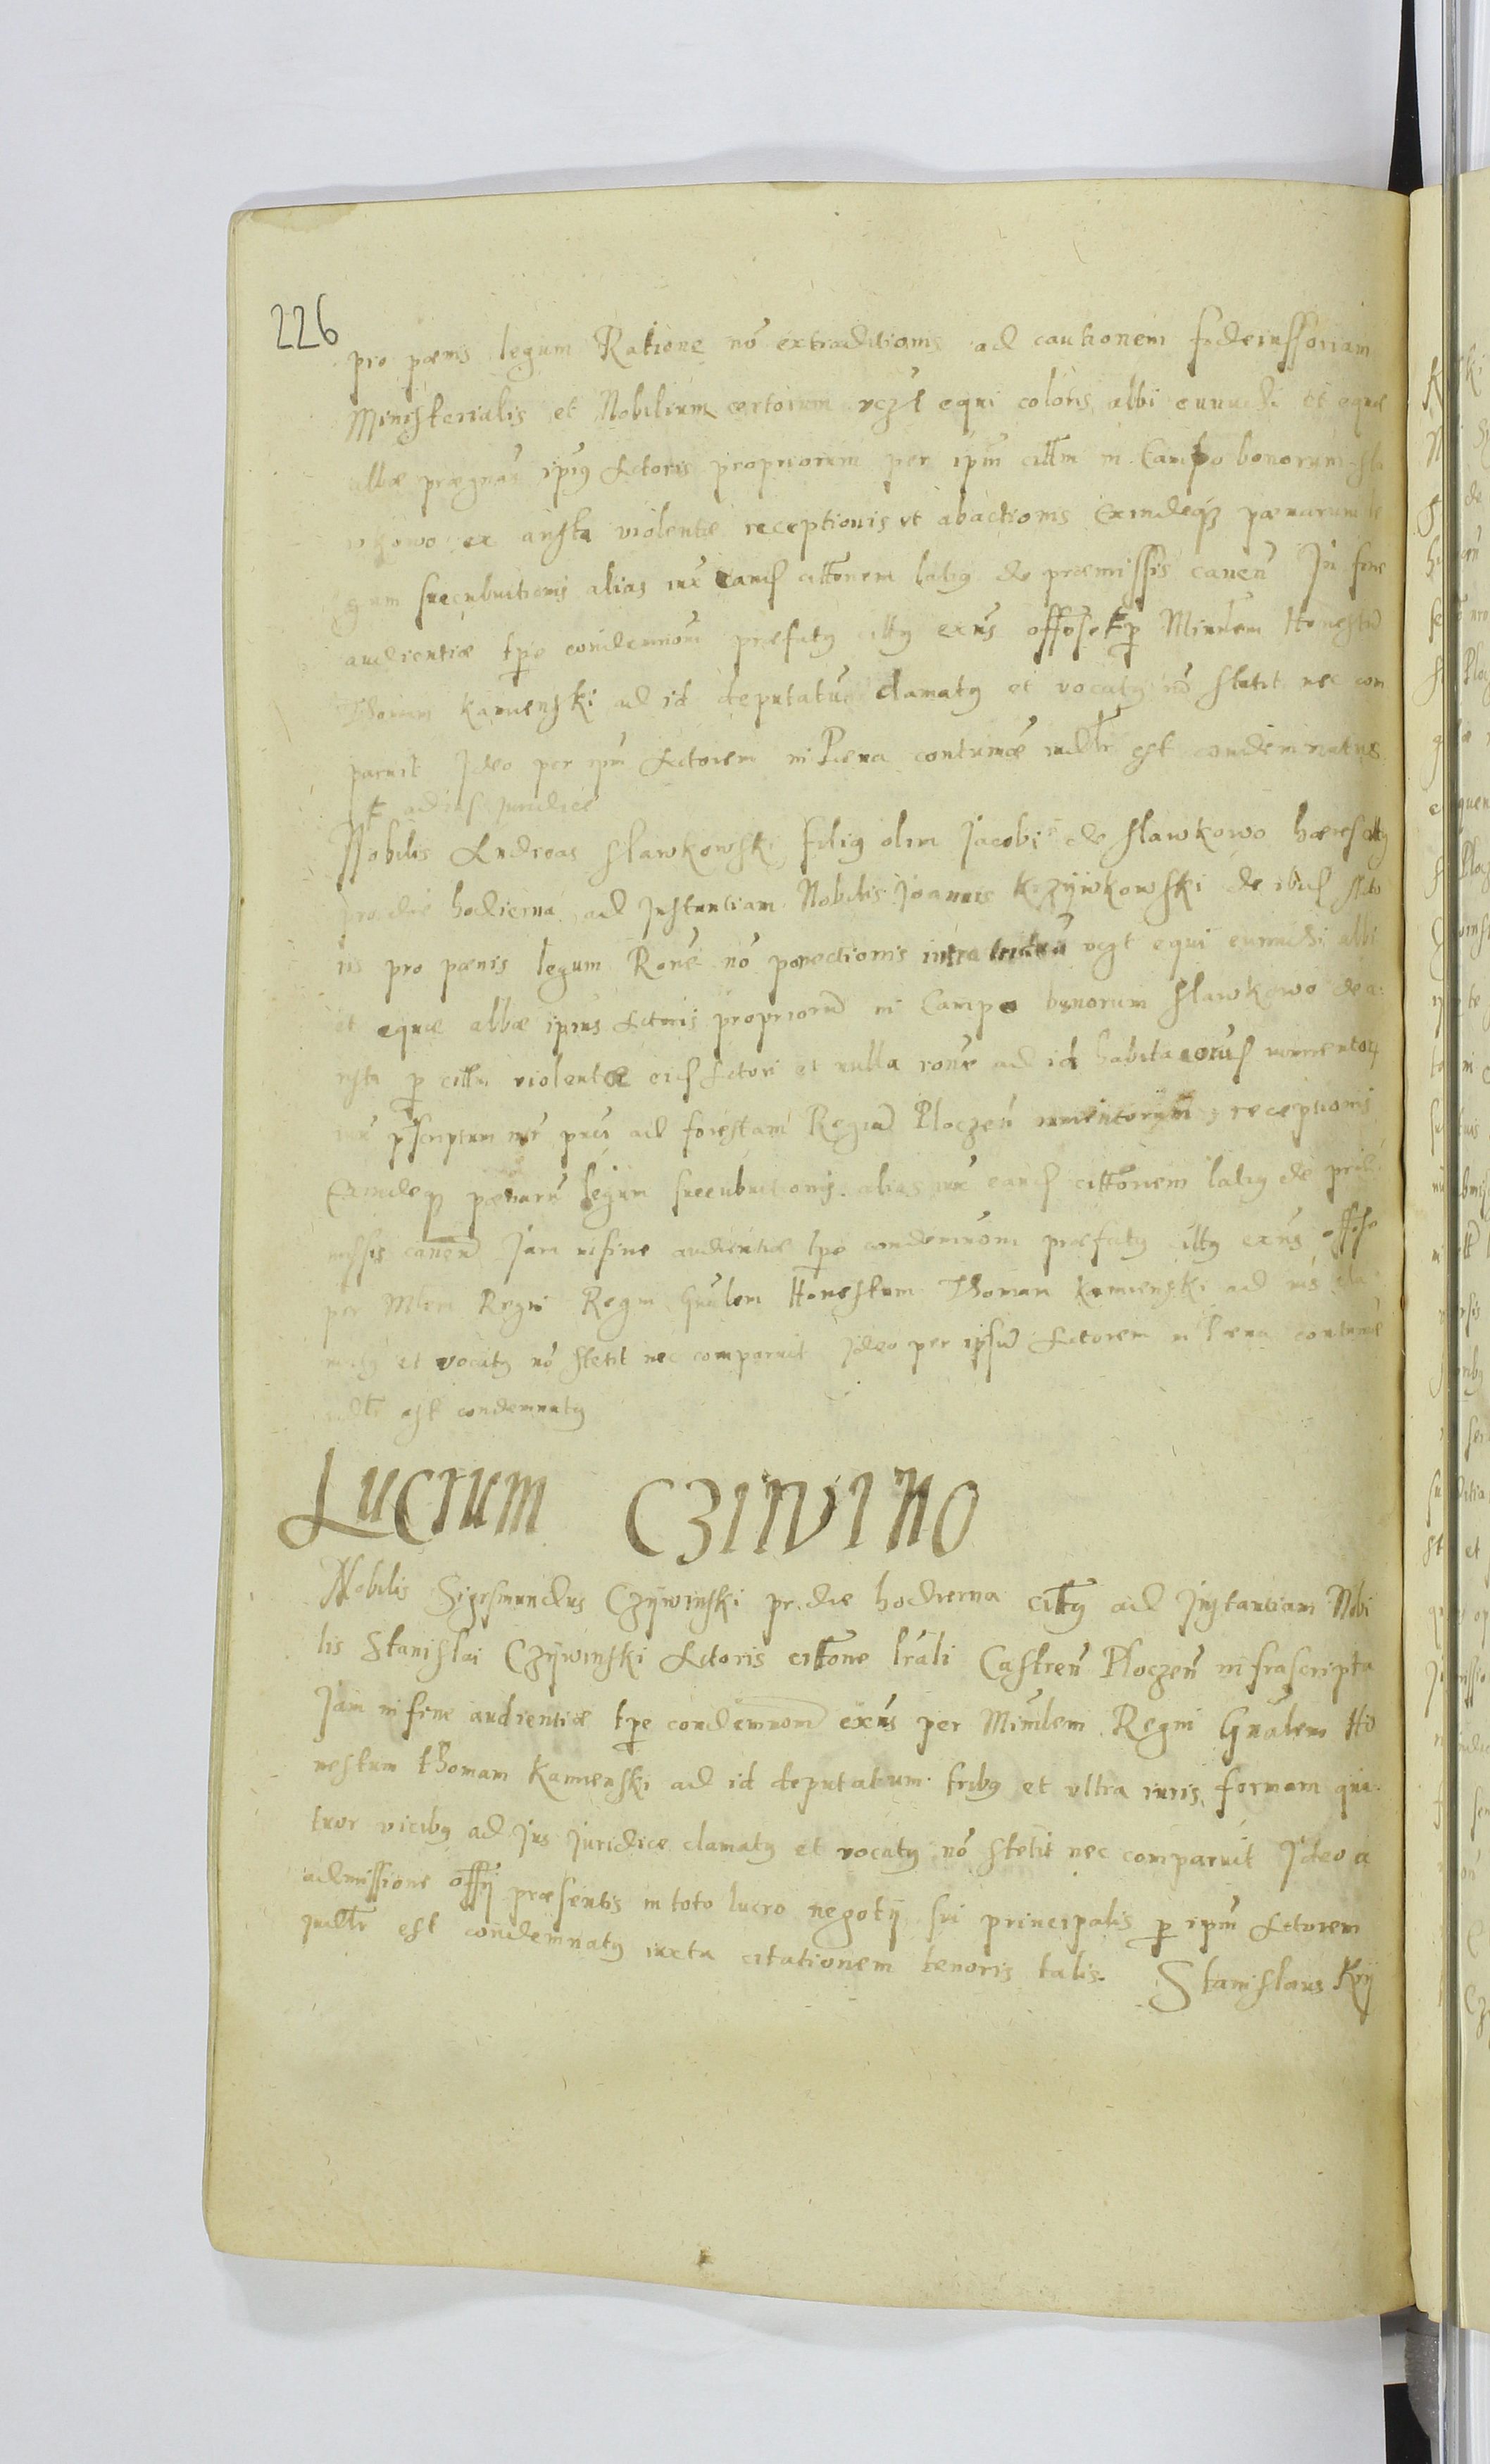 226
pro pœnis legum Ratione nō extraditionis ad cautionem fideiussoriam
Ministerialis et Nobilium certorum vczt equi coloris albi eunuchi et equæ
albæ prægnañ ipiꝰ Actoris propriorum per ipm̃ citt̃m in Campo bonorum Sła
wkowo ex violentæ receptionis et abactionis Exindeqꝫ pœnarum le
gum succubuitionis alias iux̃ eand citt̃onem latiꝰ de præmissis caneñ In fine
audientiæ tp̃e condemnom̃ præfatꝰ cittꝰ exñs offose ꝑ Minrl̃em Honestũ
Thomam Kamienski ad id deputatũ clamatꝰ et vocatꝰ nō stetit nec com
paruit Ideo per ipm̃ Actorem in Pœna contumæ iudlr̃ est condemnatus
ad ius Juridice
Nobilis Andreas Sławkowski filiꝰ olim Jacobi de Sławkowo hæres cittꝰ
pro die hodierna ad Instantiam Nobilis Joannis Krzÿwkowski de ibid Acto
ris pro pœnis legum Roñe nō vczt equi eunuchi albi
et equæ albæ ipius Actoris propriorũ in Campo bonorum Sławkowo de a
ꝑ citt̃m violentæ eid Actori et nulla rone ad id habita eorũd iumentoꝝ
ad forestam Regiã Płoczeñ iumentorum receptionis
Exindeqꝫ pœnarũ legum succubuitionis alias iux̃ eand citt̃onem latiꝰ de præ
missis caneñ Jam in fine audientiæ tp̃e condemnom̃ præfatꝰ cittꝰ exñs offose
per Mlem Regni Gñalem Honestum Thomam Kamienski ad ius cla
matꝰ et vocatꝰ nō stetit nec comparuit Ideo per ipsũ Actorem in Pœna contumæ
iudlr̃ est condemnatꝰ
Lucrum CZIWINO
Nobilis Sigismundus Czÿwinski pr die hodierna citꝰ ad Instantiam Nobi
lis Stanislai Czÿwinski Actoris citt̃one lr̃ali Castreñ Płoczeñ infrascripta
Jam in fine audientiæ tp̃e condemnom̃ exñs per Minrl̃em Regni Gñalem Ho
nestum Thomam Kamienski ad id deputatum tribꝰ et vltra iuris formam qua
tuor vicibꝰ ad Jus Juridice clamatꝰ et vocatꝰ nō stetit nec comparuit Ideo a
admissione offÿ præsentis in toto lucro negotÿ sui principalis ꝑ ipm̃ Actorem
iudlr̃ est condemnatꝰ iuxta citationem tenoris talis. Stanislaus Krÿ